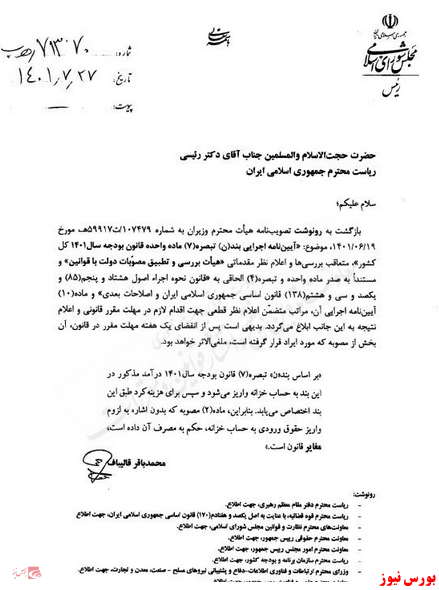 جمهوری اسلامی ایران
مجلس شورای اسلامی
رئیس
شماره: ۷۱۳۰۷۰
تاریخ: ۱۴۰۱٫۷٫۲۷
پیوست:
حضرت حجت‌الاسلام والمسلمین جناب آقای دکتر رئیسی
ریاست محترم جمهوری اسلامی ایران
سلام علیکم؛
بازگشت به رونوشت تصویب‌نامه هیأت محترم وزیران به شماره ۱۰۷۴۷۹/ت۵۹۹۱۷هـ مورخ
۱۴۰۱/۰۶/۱۹، موضوع: «آیین‌نامه اجرایی بند(ن) تبصره(۷) ماده واحده قانون بودجه سال ۱۴۰۱ کل
کشور»، متعاقب بررسی‌ها و اعلام نظر مقدماتی «هیأت بررسی و تطبیق مصوبات دولت با قوانین» و
مستنداً به صدر ماده واحده و تبصره(۴) الحاقی به «قانون نحوه اجراء اصول هشتاد و پنجم(۸۵) و
یکصد و سی و هشتم(۱۳۸) قانون اساسی جمهوری اسلامی ایران و اصلاحات بعدی» و ماده(۱۰)
آیین‌نامه اجرایی آن، مراتب متضمّن اعلام نظر قطعی جهت اقدام لازم در مهلت مقرر قانونی و اعلام
نتیجه به این جانب ابلاغ می‌گردد. بدیهی است پس از انقضای یک هفته مهلت مقرر در قانون، آن
بخش از مصوبه که مورد ایراد قرار گرفته است، ملغی‌الاثر خواهد بود.
«بر اساس بند«ن» تبصره(۷) قانون بودجه سال ۱۴۰۱ درآمد مذکور در
این بند به حساب خزانه واریز می‌شود و سپس برای هزینه‌کرد طبق این
بند اختصاص می‌یابد. بنابراین، ماده(۲) مصوبه که بدون اشاره به لزوم
واریز حقوق ورودی به حساب خزانه، حکم به مصرف آن داده است،
مغایر قانون است.»
محمدباقر قالیباف
رونوشت:
- ریاست محترم دفتر مقام معظم رهبری، جهت اطلاع.
- ریاست محترم قوه قضائیه، با عنایت به اصل یکصد و هفتادم(۱۷۰) قانون اساسی جمهوری اسلامی ایران، جهت اطلاع.
- معاونت‌های محترم نظارت و قوانین مجلس شورای اسلامی، جهت اطلاع.
- معاونت محترم حقوقی رییس جمهور، جهت اطلاع.
- معاونت محترم امور مجلس رییس جمهور، جهت اطلاع.
- ریاست محترم سازمان برنامه و بودجه کشور، جهت اطلاع.
- وزرای محترم ارتباطات و فناوری اطلاعات-دفاع و پشتیبانی نیروهای مسلح - صنعت، معدن و تجارت، جهت اطلاع.
بورس نیوز